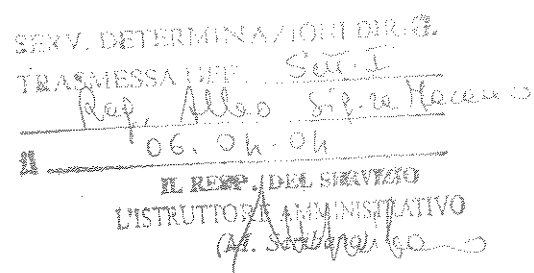 SERV. DETERMINAZIONI DIR.G.
TRASMESSA UFF. Sett. I
Rag, Albo Sig.ra
Il 06.04.04
IL RESP. DEL SERVIZIO
L'ISTRUTTORE AMMINISTRATIVO
(M.